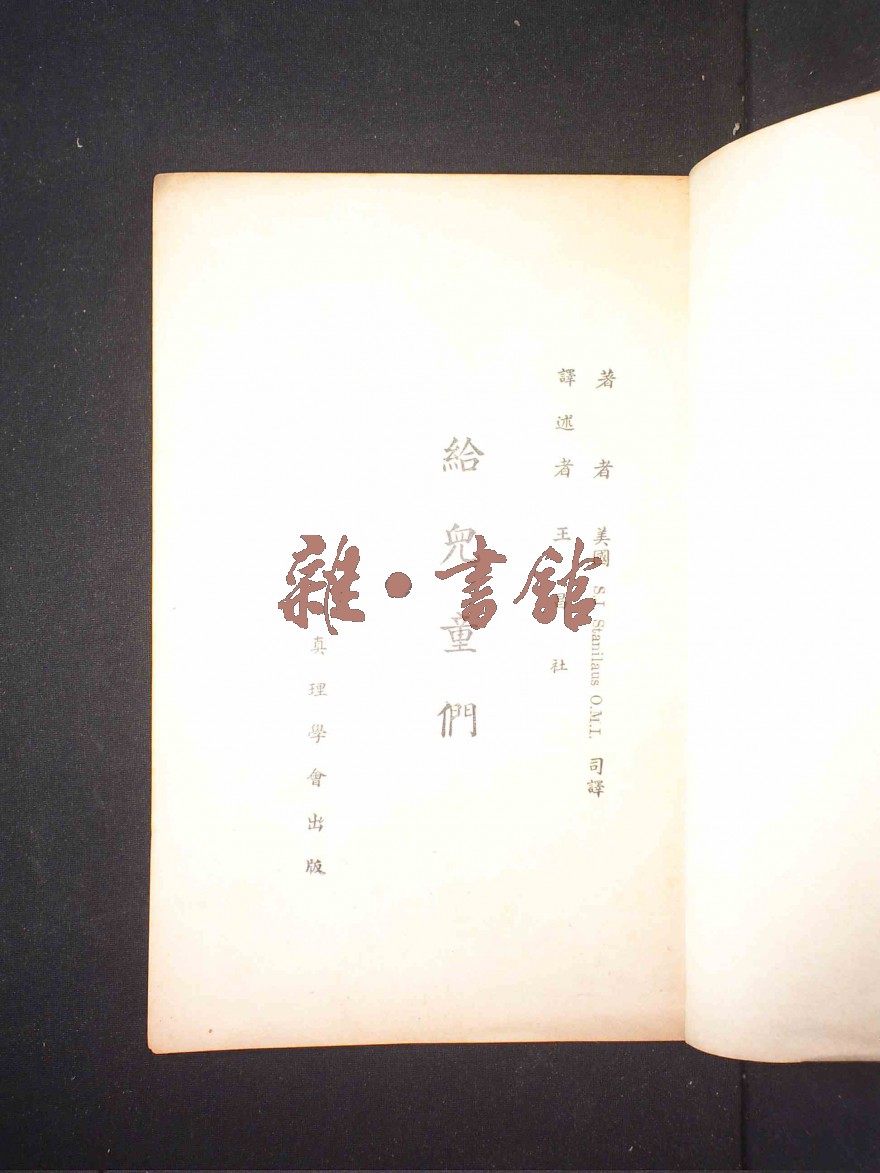 著者 美國 S.J. Stanilaus O.M.I. 司譯
譯述者 王昌社
給兒童們
真理學會出版
雜·書館